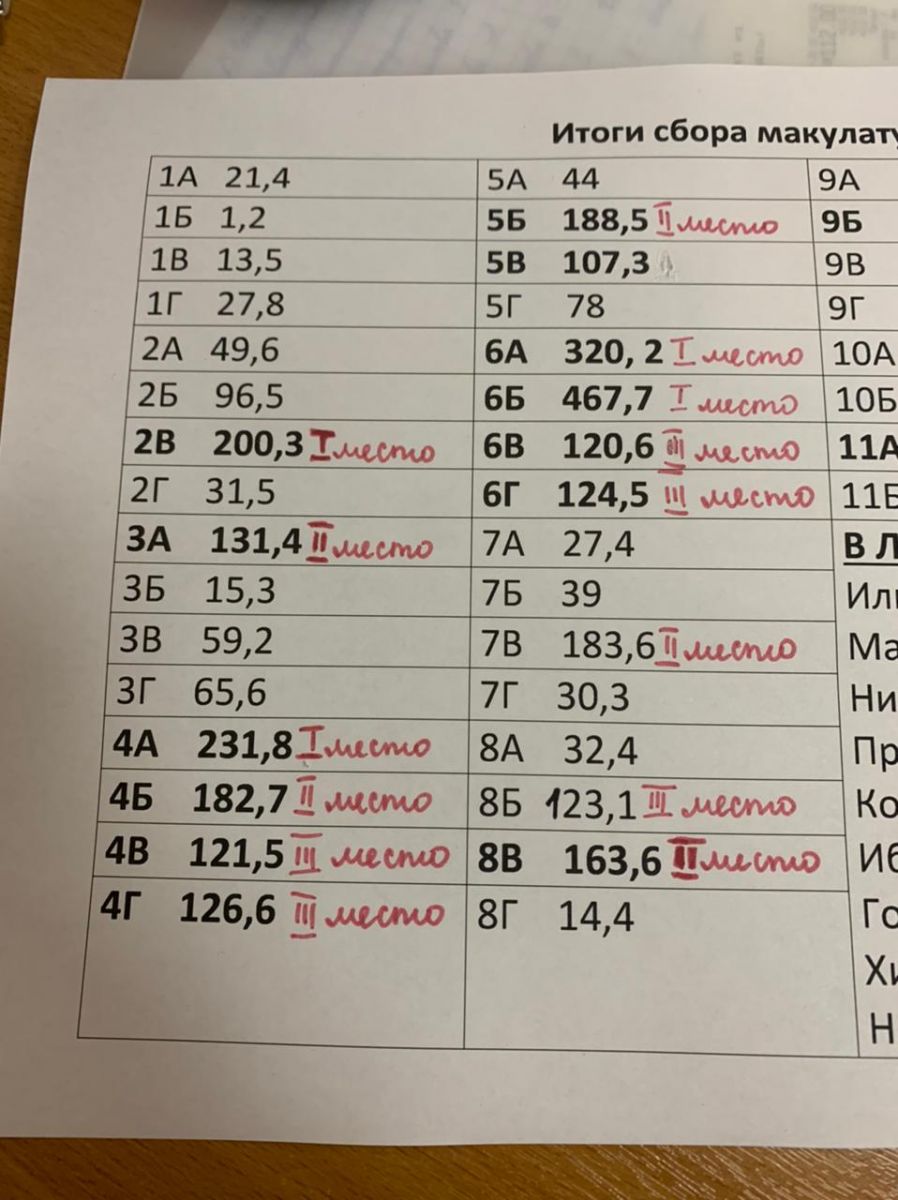 Итоги сбора
1А 21,4
1Б 1,2
1В 13,5
1Г 27,8
2А 49,6
2Б 96,5
2В 200,3 I место
2Г 31,5
3А 131,4 II место
3Б 15,3
3В 59,2
3Г 65,6
4А 231,8 I место
4Б 182,7 II место
4В 121,5 III место
4Г 126,6 III место
5А 44
5Б 188,5 II место
5В 107,3
5Г 78
6А 320, 2 I место
6Б 467,7 I место
6В 120,6 III место
6Г 124,5 III место
7А 27,4
7Б 39
7В 183,6 II место
7Г 30,3
8А 32,4
8Б 123,1 III место
8В 163,6 II место
8Г 14,4
9А
9Б
9В
9Г
10А
10Б
11А
11Б
В